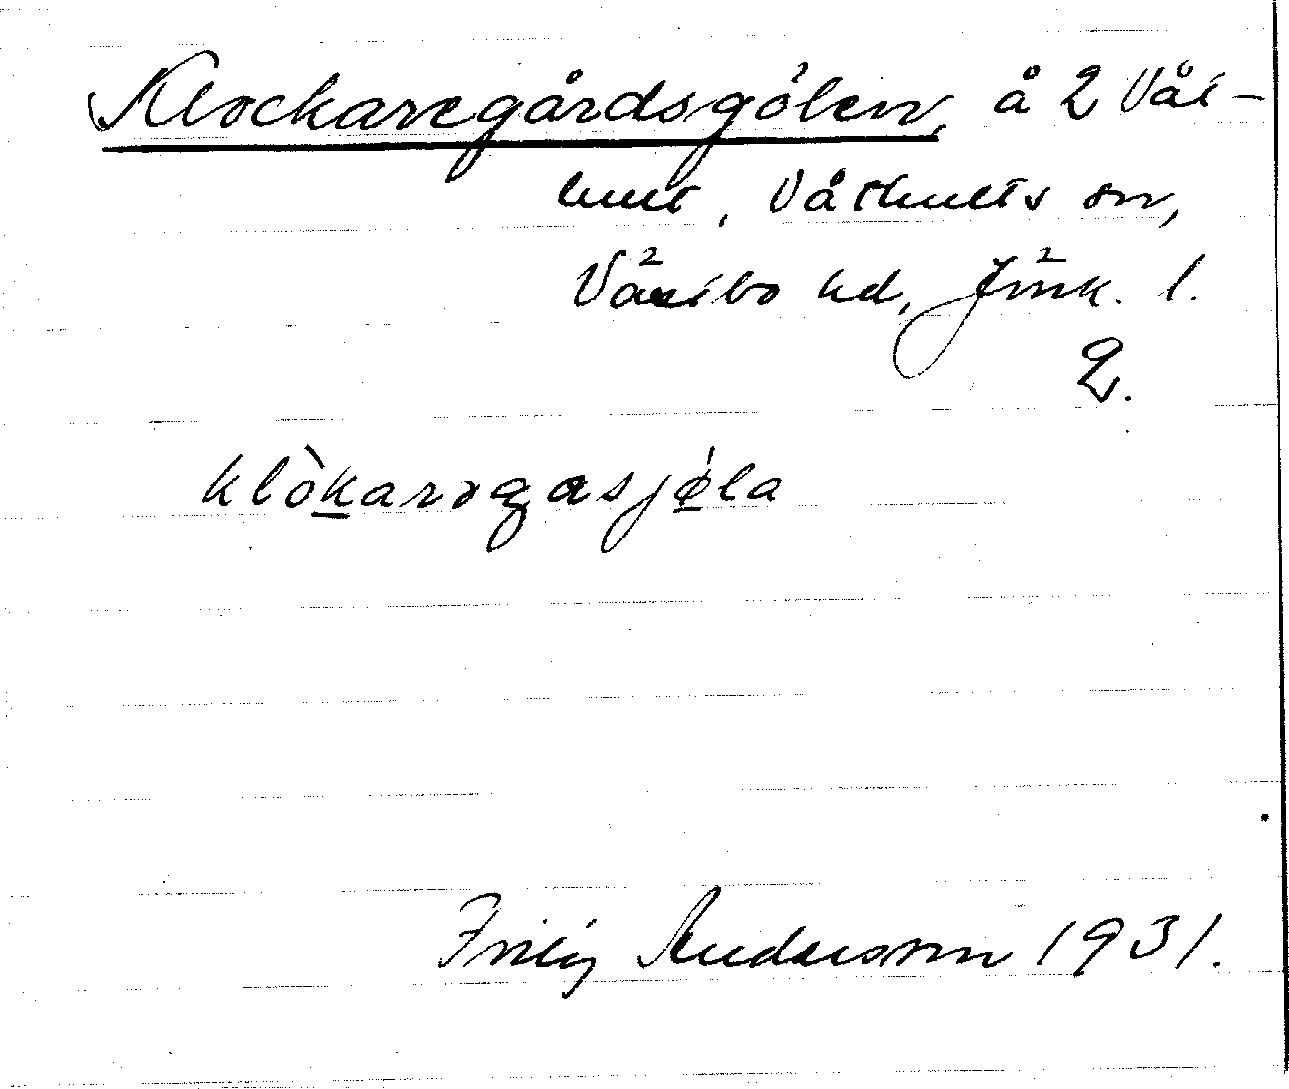 Klockaregårdsgölen, å 2 Vås-
hult, Våthults sn,
Västbo hd, Jönk. l.
2.
klòkarəgasjǿla
Frithj Andersson 1931.